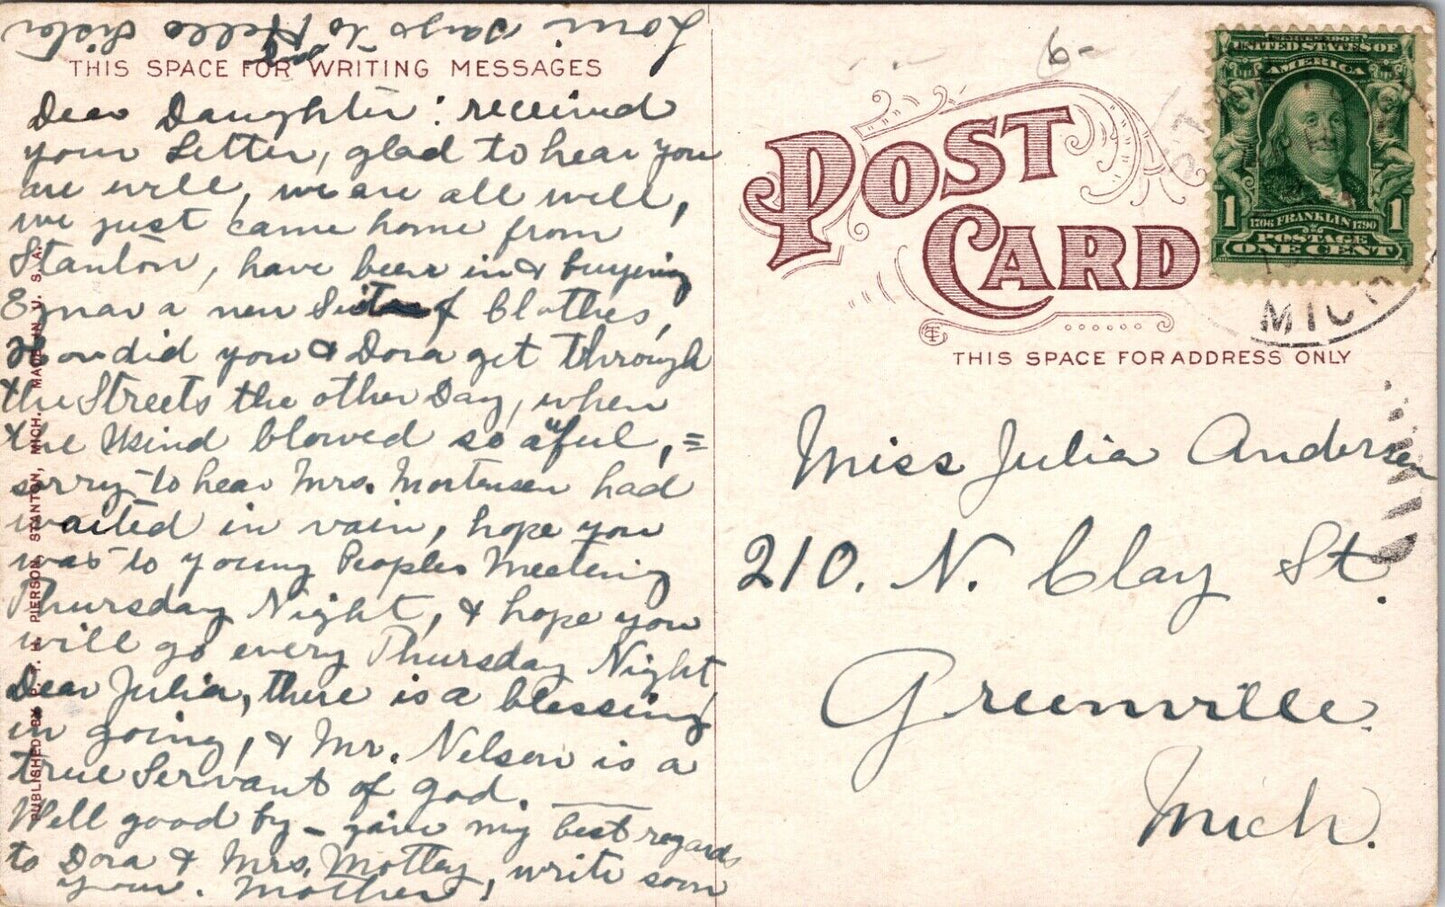 Lori says to Hello Sister
THIS SPACE FOR WRITING MESSAGES
Dear Daughter: received
your Letter, glad to hear you
are well, we are all well,
we just came home from
Stanton, have been in & buyeing
a new Suit of Clothes,
How did you & Dora get through
the Streets the other Day, when
the Wind blowed so awful, =
sorry to hear Mrs. Mortensen had
waited in vain, hope you
was to young Peoples Meeteing
Thursday Night, & hope you
will go every Thursday Night
Dear Julia, there is a blessing
in going, & Mr. Nelson is a
true Servant of god.
Well good by – give my best regards
to Dora & Mrs. Mottey, write soon
your. Mother
PUBLISHED BY P. T. H. PIERSON, STANTON, MICH. MADE IN U. S. A.
6-
POST
CARD
THIS SPACE FOR ADDRESS ONLY
UNITED STATES OF
AMERICA
1 1706 FRANKLIN 1790 1
POSTAGE
ONE CENT
MICH
Miss Julia Andersen
210. N. Clay St.
Greenville.
Mich.